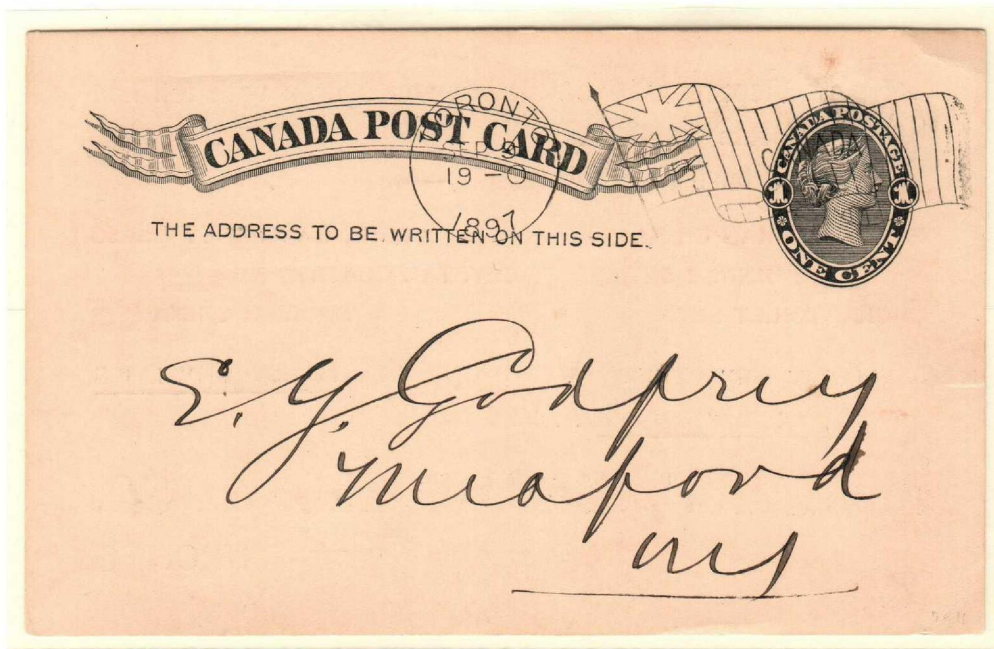 CANADA POST CARD
TORONTO
SEP 9
19 – 0
1897
CANADA
CANADA POSTAGE
1 1
ONE CENT
THE ADDRESS TO BE WRITTEN ON THIS SIDE.
E. Y. Godfrey
Meaford
Ont